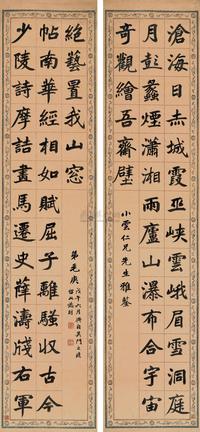 滄海日赤城霞巫峽雲峨眉雪洞庭
月彭蠡煙瀟湘雨廬山瀑布合宇宙
奇觀繪吾齋壁
小雲仁兄先生雅鑒
少陵詩摩詰畫馬遷史薛濤牋右軍
帖南華經相如賦屈子離騷收古今
絕藝置我山窗
弟毛庚